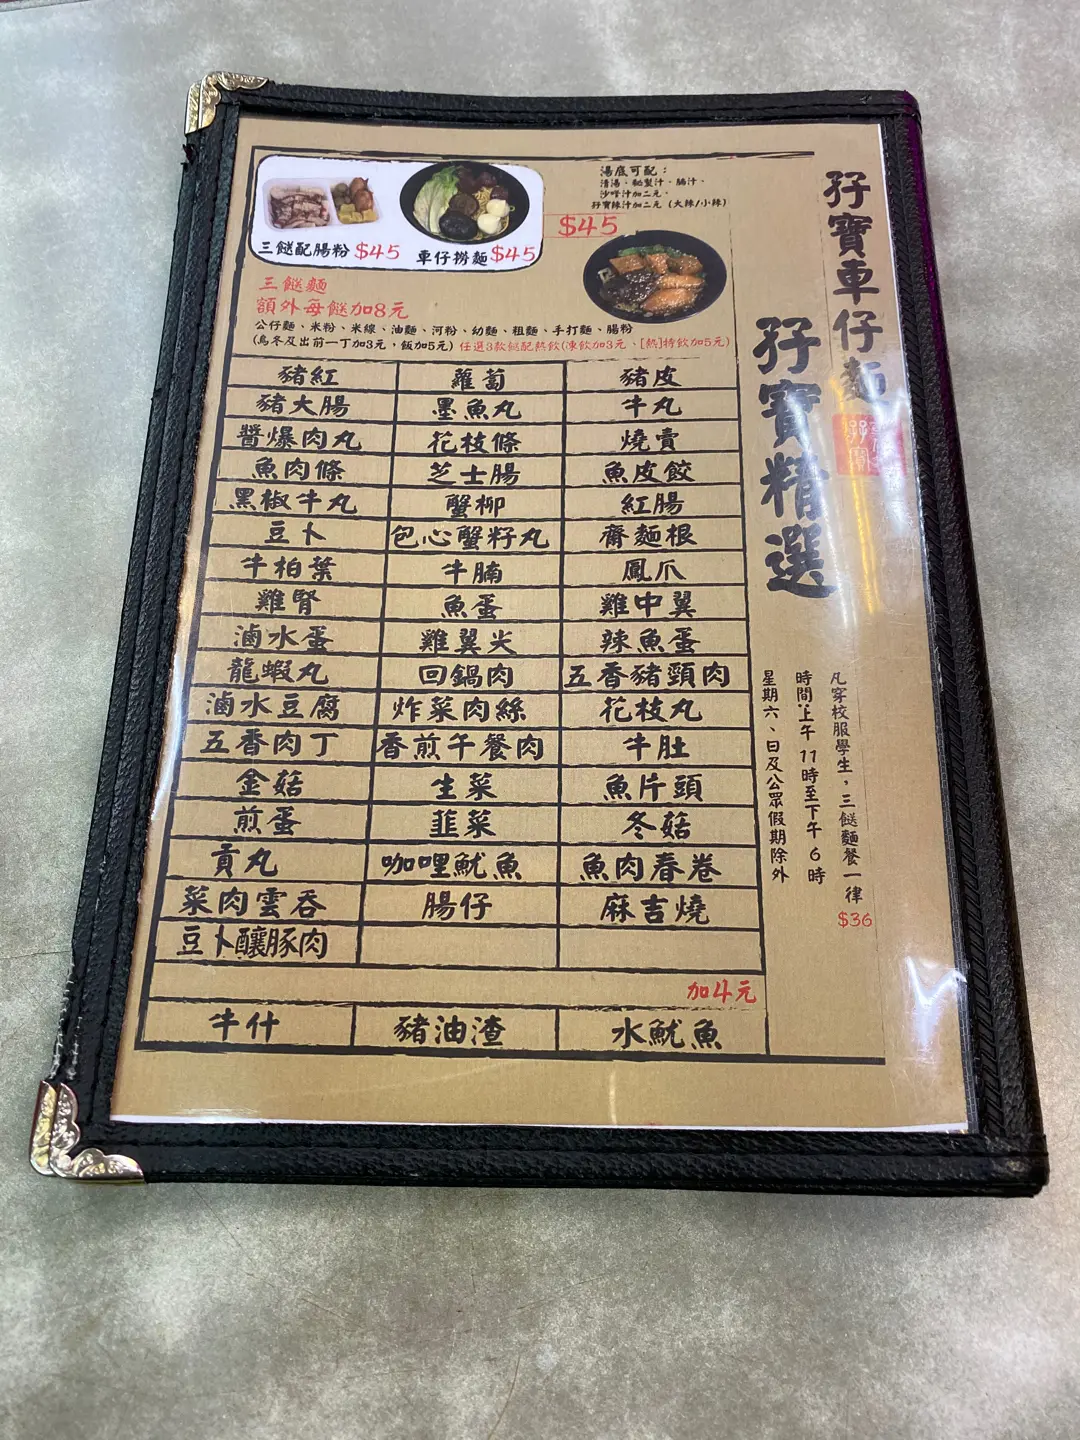 孖寶車仔麵
孖寶精選
湯底可配：
清湯、秘製汁、腩汁、
沙嗲汁加二元、
孖寶辣汁加二元（大辣/小辣）
$45
三餸配腸粉 $45
車仔撈麵 $45
三餸麵
額外每餸加8元
公仔麵、米粉、米線、油麵、河粉、幼麵、粗麵、手打麵、腸粉
(烏冬及出前一丁加3元，飯加5元) 任選3款餸配熱飲(凍飲加3元、[熱]特飲加5元)
豬紅 蘿蔔 豬皮
豬大腸 墨魚丸 牛丸
醬爆肉丸 花枝條 燒賣
魚肉條 芝士腸 魚皮餃
黑椒牛丸 蟹柳 紅腸
豆卜 包心蟹籽丸 齋麵根
牛柏葉 牛腩 鳳爪
雞腎 魚蛋 雞中翼
滷水蛋 雞翼尖 辣魚蛋
龍蝦丸 回鍋肉 五香豬頸肉
滷水豆腐 炸菜肉絲 花枝丸
五香肉丁 香煎午餐肉 牛肚
金菇 生菜 魚片頭
煎蛋 韮菜 冬菇
貢丸 咖哩魷魚 魚肉春卷
菜肉雲吞 腸仔 麻吉燒
豆卜釀豚肉
加4元
牛什 豬油渣 水魷魚
凡穿校服學生，三餸麵餐一律 $36
時間:上午 11時至下午 6 時
星期六、日及公眾假期除外